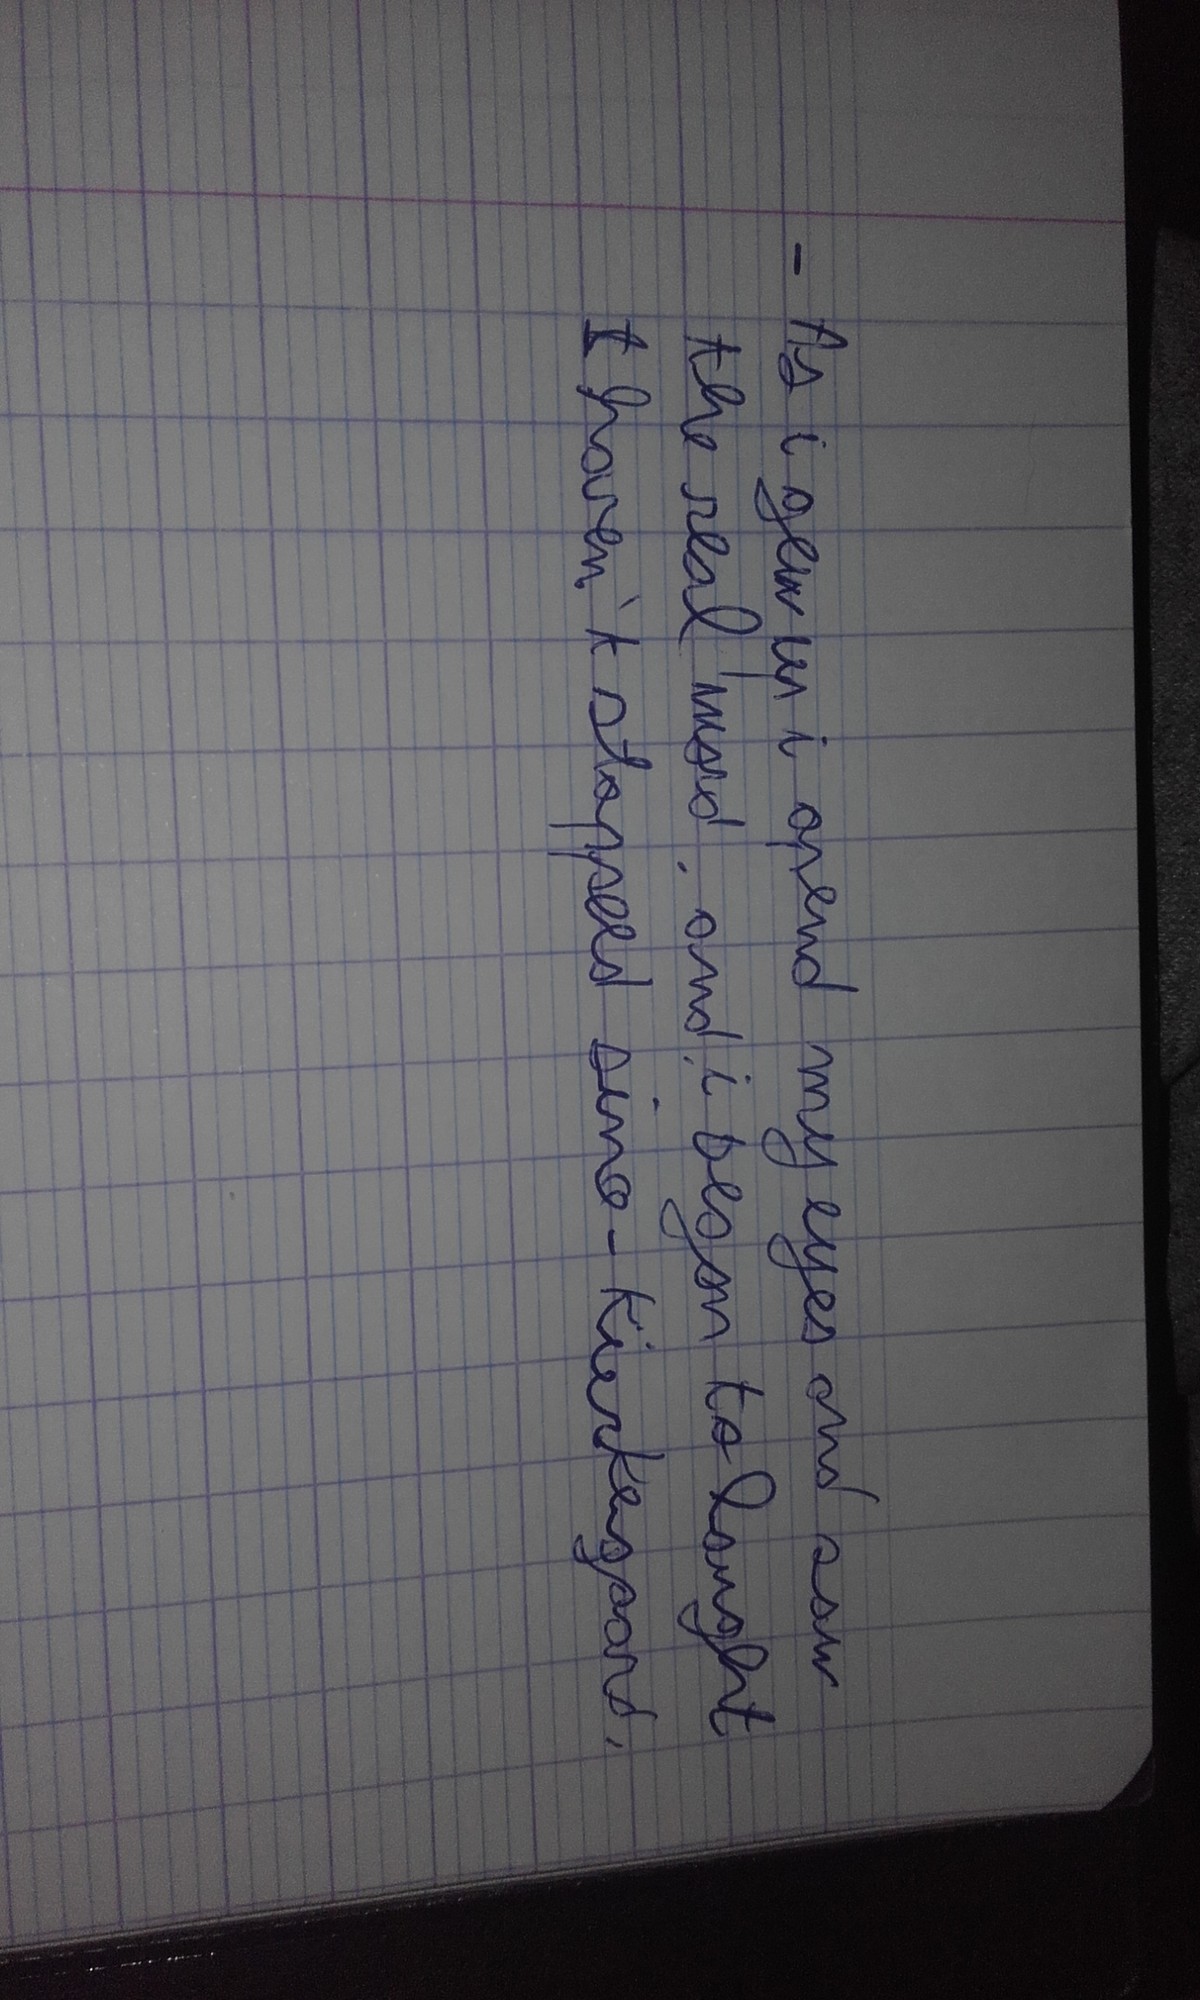 - As i gew up i opend my eyes and saw
the real word, and i began to laught
I haven't stopped sine - Kierkegaard.